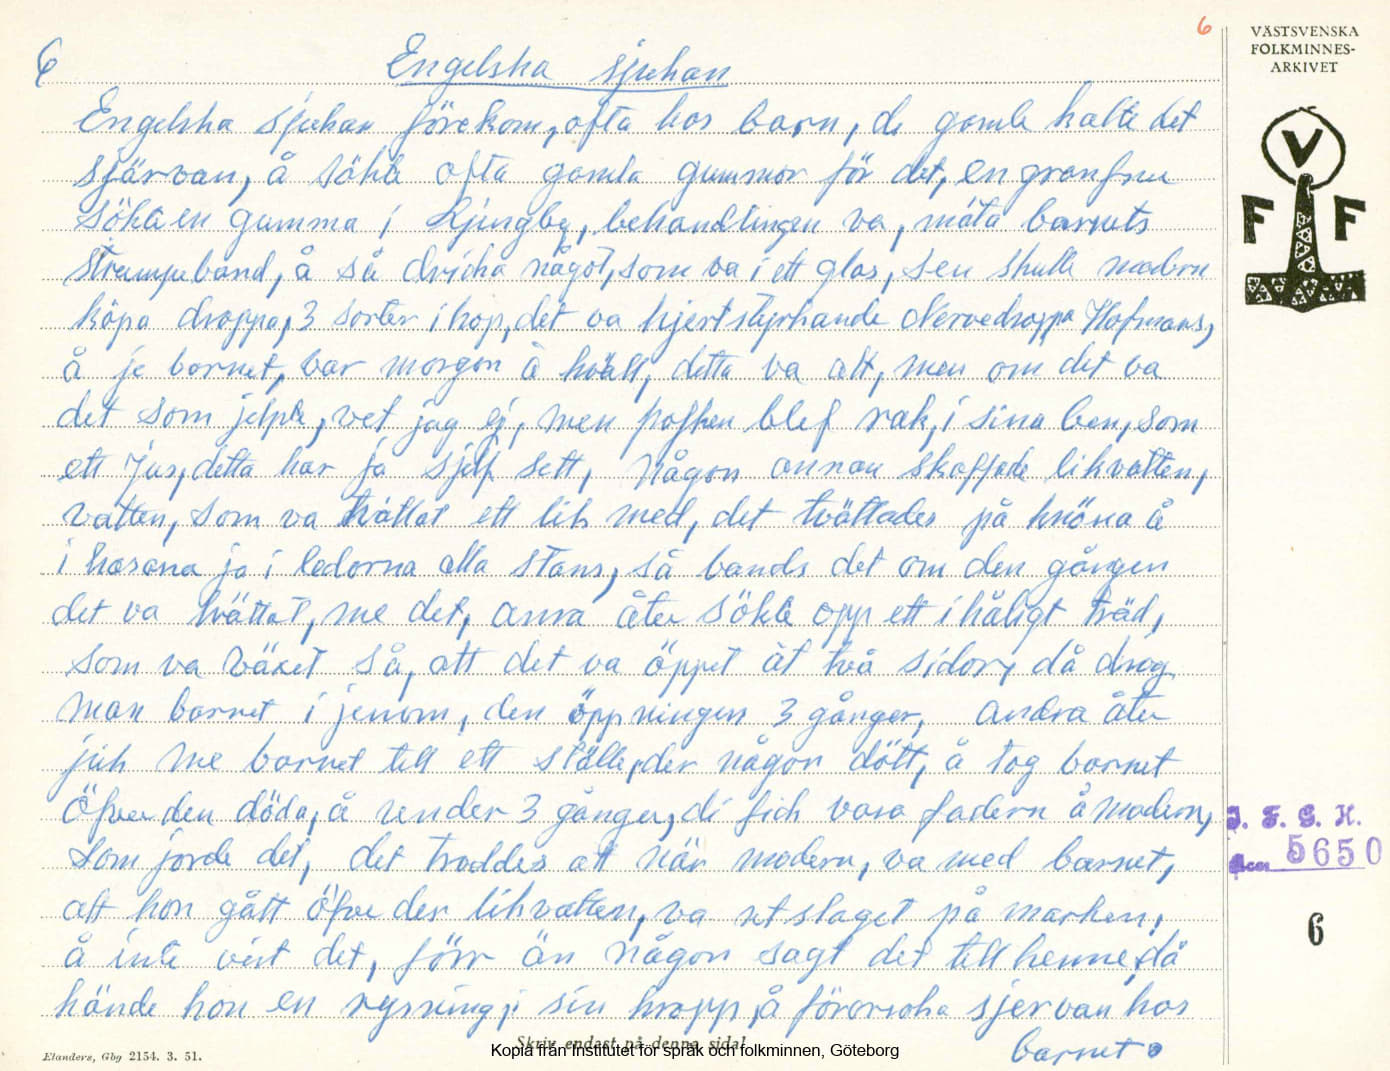 6
VÄSTSVENSKA
FOLKMINNES-
ARKIVET
6 Engelska sjukan
Engelska sjukan förekom, ofta hos barn, de gamla kalte det
sjärvan, å sökte ofta gamla gummor för det, en granfru
sökte en gumma i Ljungby, behandlingen va, mäta barnets
strumpeband, å så dricka något, som va i ett glas, sen skulle modern
köpa droppa, 3 sorter ihop, det va hjertstyrkande Nervedroppa Hofmans,
å je barnet, var morgon å kväll, detta va allt, men om det va
det som jelpte, vet jag ej, men pojken blef rak, i sina ben, som
ett jus, detta har ja sjelf sett, någon annan skaffade likvatten,
vatten, som va tvättat ett lik med, det tvättades på knöna å
i hasana ja i ledorna alla stans, så bands det om den gången
det va tvättat, me det, anra åter sökte opp ett ihåligt träd,
som va växet så, att det va öppet åt två sidor, då drog
man barnet i jenom, den öppningen 3 gånger, andra åter
jick me barnet till ett ställe, der någon dött, å tog barnet
öfver den döda, å under 3 gånger, di fick vara fadern å modern,
som jorde det, det troddes att när modern, va med barnet,
att hon gått öfve der likvatten, va utslaget på marken,
å inte vist det, förr än någon sagt det till henne, då
hände hon en rysning, i sin kropp, å förorsaka sjervan hos
barnet.
V
F F
I. F. G. H.
5650
6
Skriv endast på denna sida!
Elanders, Gbg 2154. 3. 51.
Kopia från Institutet för språk och folkminnen, Göteborg